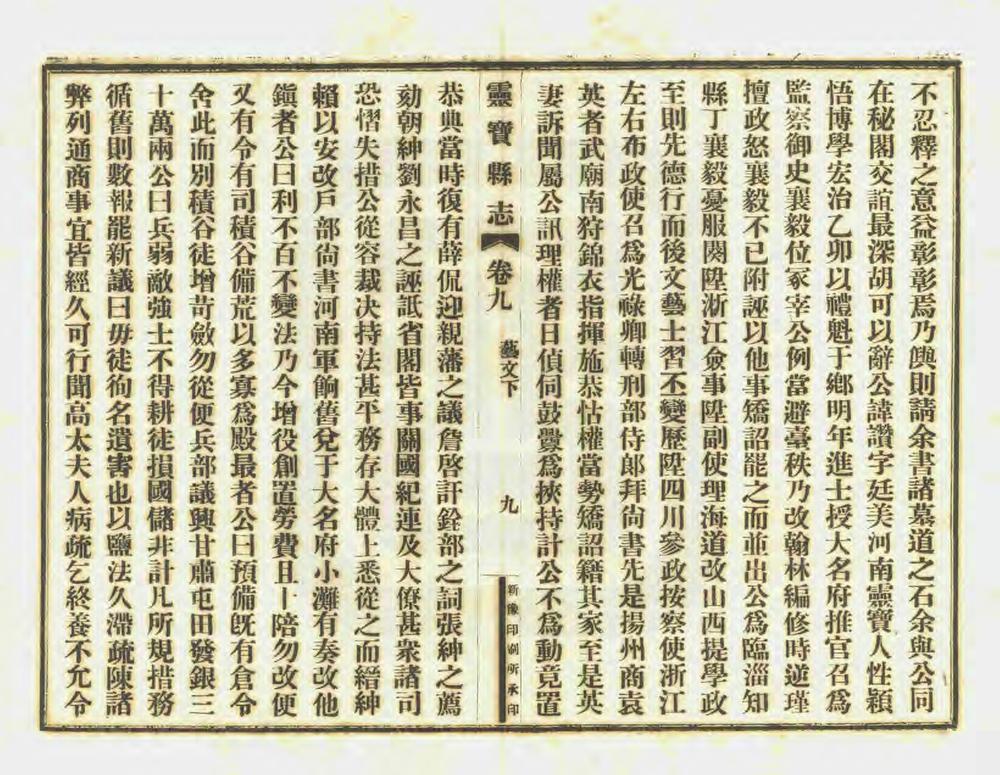 不忍釋之意益彰彰焉乃輿則請余書諸墓道之石余與公同
在秘閣交誼最深胡可以辭公諱讚字廷美河南靈寶人性穎
悟博學宏治乙卯以禮魁于鄉明年進士授大名府推官召爲
監察御史襄毅位冢宰公例當避臺秩乃改翰林編修時逆瑾
擅政怒襄毅不已附誣以他事矯詔罷之而並出公爲臨淄知
縣丁襄毅憂服闋陞浙江僉事陞副使理海道改山西提學政
至則先德行而後文藝士習丕變歷陞四川參政按察使浙江
左右布政使召爲光祿卿轉刑部侍郎拜尙書先是揚州商袁
英者武廟南狩錦衣指揮施恭怙權當勢矯詔籍其家至是英
妻訴聞屬公訊理權者日偵伺鼓釁爲挾持計公不爲動竟置
靈寶縣志 卷九 藝文下 九 新豫印刷所承印
恭典當時復有薛侃迎親藩之議詹啓訐銓部之詞張紳之薦
劾朝紳劉永昌之誣詆省閣皆事關國紀連及大僚甚衆諸司
恐慴失措公從容裁决持法甚平務存大體上悉從之而縉紳
賴以安改戶部尙書河南軍餉舊兌于大名府小灘有奏改他
鎭者公曰利不百不變法乃今增役創置勞費且十陪勿改便
又有令有司積谷備荒以多寡爲殿最者公曰預備旣有倉令
舍此而別積谷徒增苛斂勿從便兵部議興甘肅屯田發銀三
十萬兩公曰兵弱敵強士不得耕徒損國儲非計凡所規措務
循舊則數報罷新議曰毋徒徇名遺害也以鹽法久滯疏陳諸
弊列通商事宜皆經久可行聞高太夫人病疏乞終養不允令